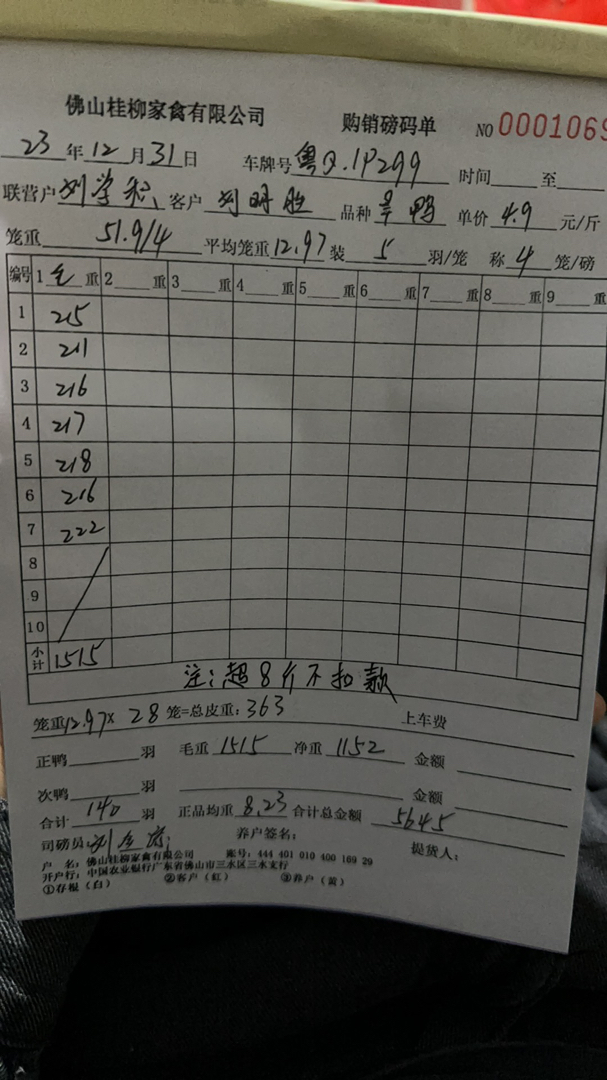 佛山桂柳家禽有限公司 购销磅码单 NO 0001069
23 年 12 月 31 日 车牌号 粤Q.1P299 时间 至
联营户 刘学积 客户 刘明胜 品种 旱鸭 单价 4.9 元/斤
笼重 51.9/4 平均笼重 12.97 装 5 羽/笼 称 4 笼/磅
编号 1 毛 重 2 重 3 重 4 重 5 重 6 重 7 重 8 重 9 重
1 215
2 211
3 216
4 217
5 218
6 216
7 222
8
9
10
小计 1515
注:超8斤不扣款
笼重 12.97 × 28 笼=总皮重: 363 上车费
正鸭 羽 毛重 1515 净重 1152 金额
次鸭 羽 金额
合计 140 羽 正品均重 8.23 合计总金额 5645
司磅员: 养户签名: 提货人:
户 名: 佛山桂柳家禽有限公司 账号: 444 401 010 400 169 29
开户行: 中国农业银行广东省佛山市三水区三水支行
①存根(白) ②客户(红) ③养户(黄)